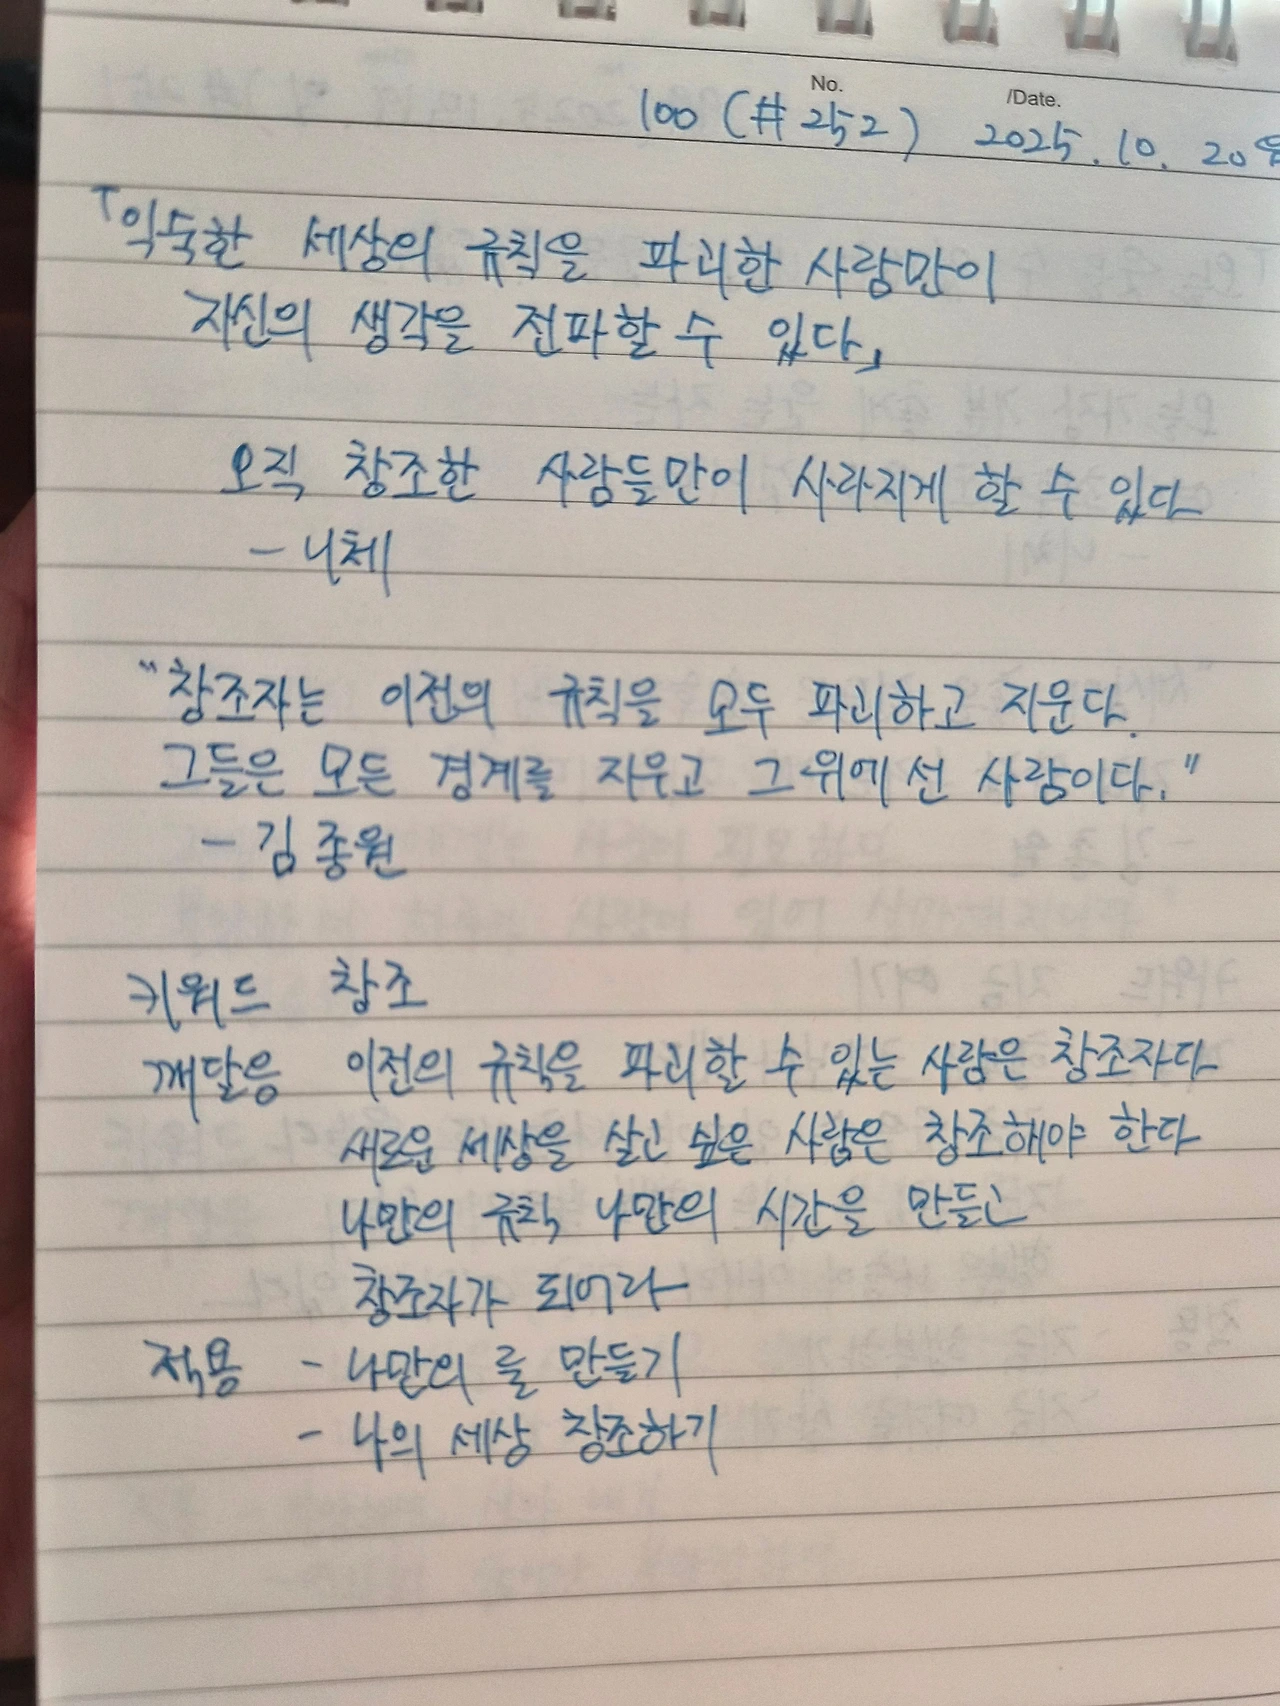 No.
/Date.
100 (# 252) 2025.10.20월
「익숙한 세상의 규칙을 파괴한 사람만이
자신의 생각을 전파할 수 있다」
오직 창조한 사람들만이 사라지게 할 수 있다
- 니체
"창조자는 이전의 규칙을 모두 파괴하고 지운다.
그들은 모든 경계를 지우고 그 위에 선 사람이다."
- 김종원
키워드 창조
깨달음 이전의 규칙을 파괴할 수 있는 사람은 창조자다
새로운 세상을 살고 싶은 사람은 창조해야 한다
나만의 규칙 나만의 시간을 만들고
창조자가 되어라
적용 - 나만의 룰 만들기
- 나의 세상 창조하기